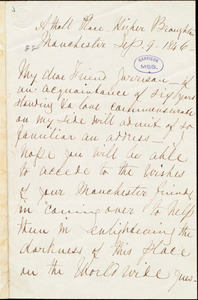 Athol Place Higher Broughton
Manchester Sep. 9. 1846
My dear Friend Garrison if
an acquaintance of six years
standing & a love commensurate
on my side will admit of so
familiar an address—I
hope you will be able
to accede to the wishes
of your Manchester friends
in "coming over to help"
them in enlightening the
darkness of this place
on the World Wide ques-